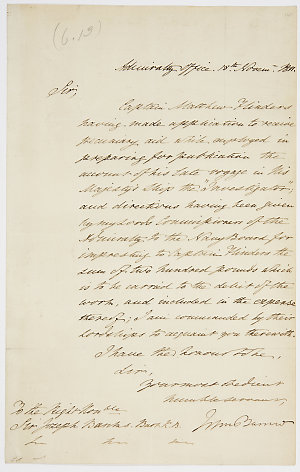 (6.19)
Admiralty Office 18th Novr. 1811.
Sir,
Captain Matthew Flinders
having made application to receive
pecuniary aid while employed in
preparing for publication the
account of his late voyage in His
Majesty's Ship the "Investigator,"
and directions having been given
by my Lords Commissioners of the
Admiralty to the Navy Board for
impresting to Captain Flinders the
sum of two hundred pounds which
is to be carried to the debit of the
work, and included in the expense
thereof; I am commanded by their
Lordships to acquaint you therewith.
I have the Honour to be,
Sir,
Your most obedient
humble servant,
To the Right Honble
Sir Joseph Banks Bart K.B.
John Barrow